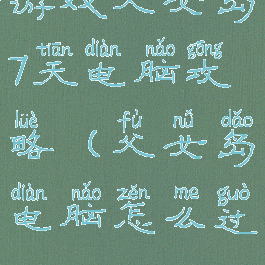 游戏父女岛
tiān diàn nǎo gōng
7天电脑攻
lüè fù nǚ dǎo
略（父女岛
diàn nǎo zěn me guò
电脑怎么过